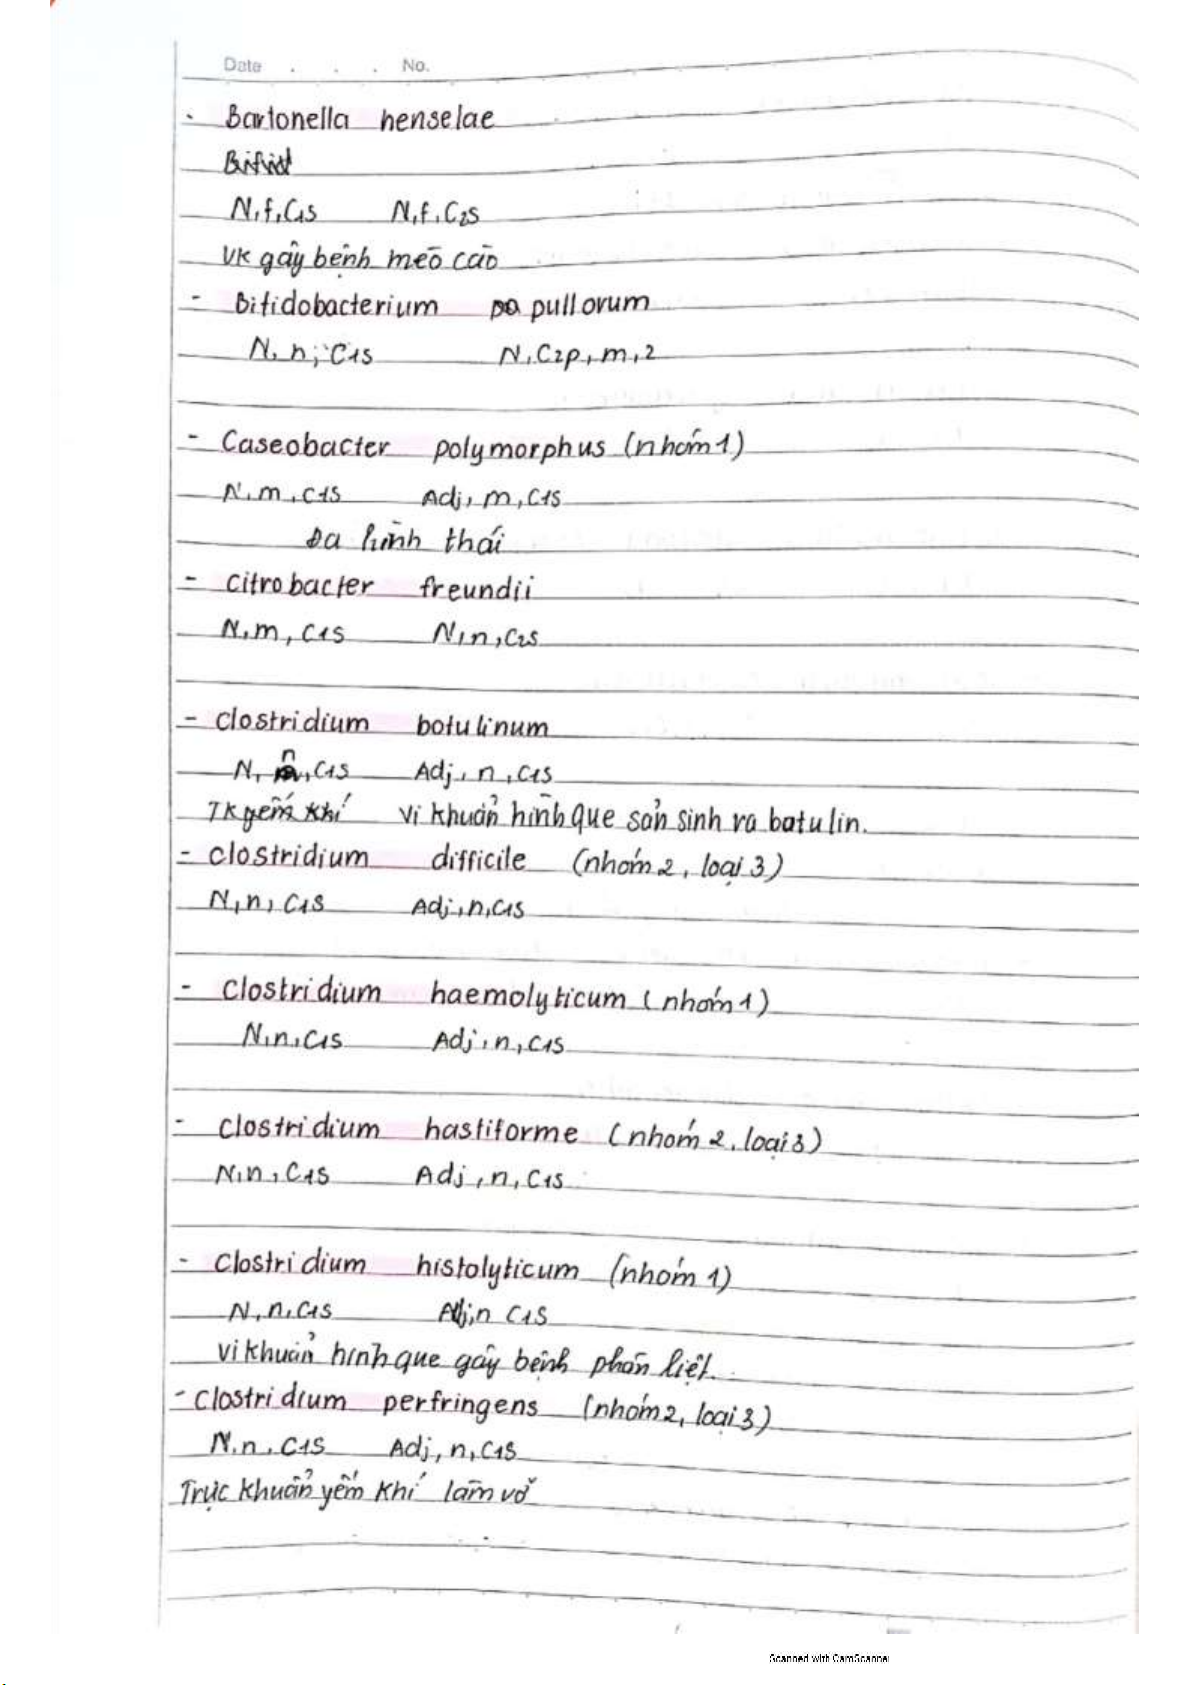 Date . . . No.
- Bartonella henselae
N, f, C1s N, f, C2s
VK gây bệnh mèo cào
- Bifidobacterium pullorum
N, n, C1s N, C2p, m, 2
- Caseobacter polymorphus (nhóm 1)
N, m, C1s Adj, m, C1s
Đa hình thái
- Citrobacter freundii
N, m, C1s N, n, C2s
- Clostridium botulinum
N, n, C1s Adj, n, C1s
TK yếm khí vi khuẩn hình que sản sinh ra batulin.
- Clostridium difficile (nhóm 2, loại 3)
N, n, C1s Adj, n, C1s
- Clostridium haemolyticum (nhóm 1)
N, n, C1s Adj, n, C1s
- Clostridium hastiforme (nhóm 2, loại 3)
N, n, C1s Adj, n, C1s
- Clostridium histolyticum (nhóm 1)
N, n, C1s Adj, n C1s
vi khuẩn hình que gây bệnh phân liệt.
- Clostridium perfringens (nhóm 2, loại 3)
N, n, C1s Adj, n, C1s
Trực khuẩn yếm khí làm vỡ
Scanned with CamScanner